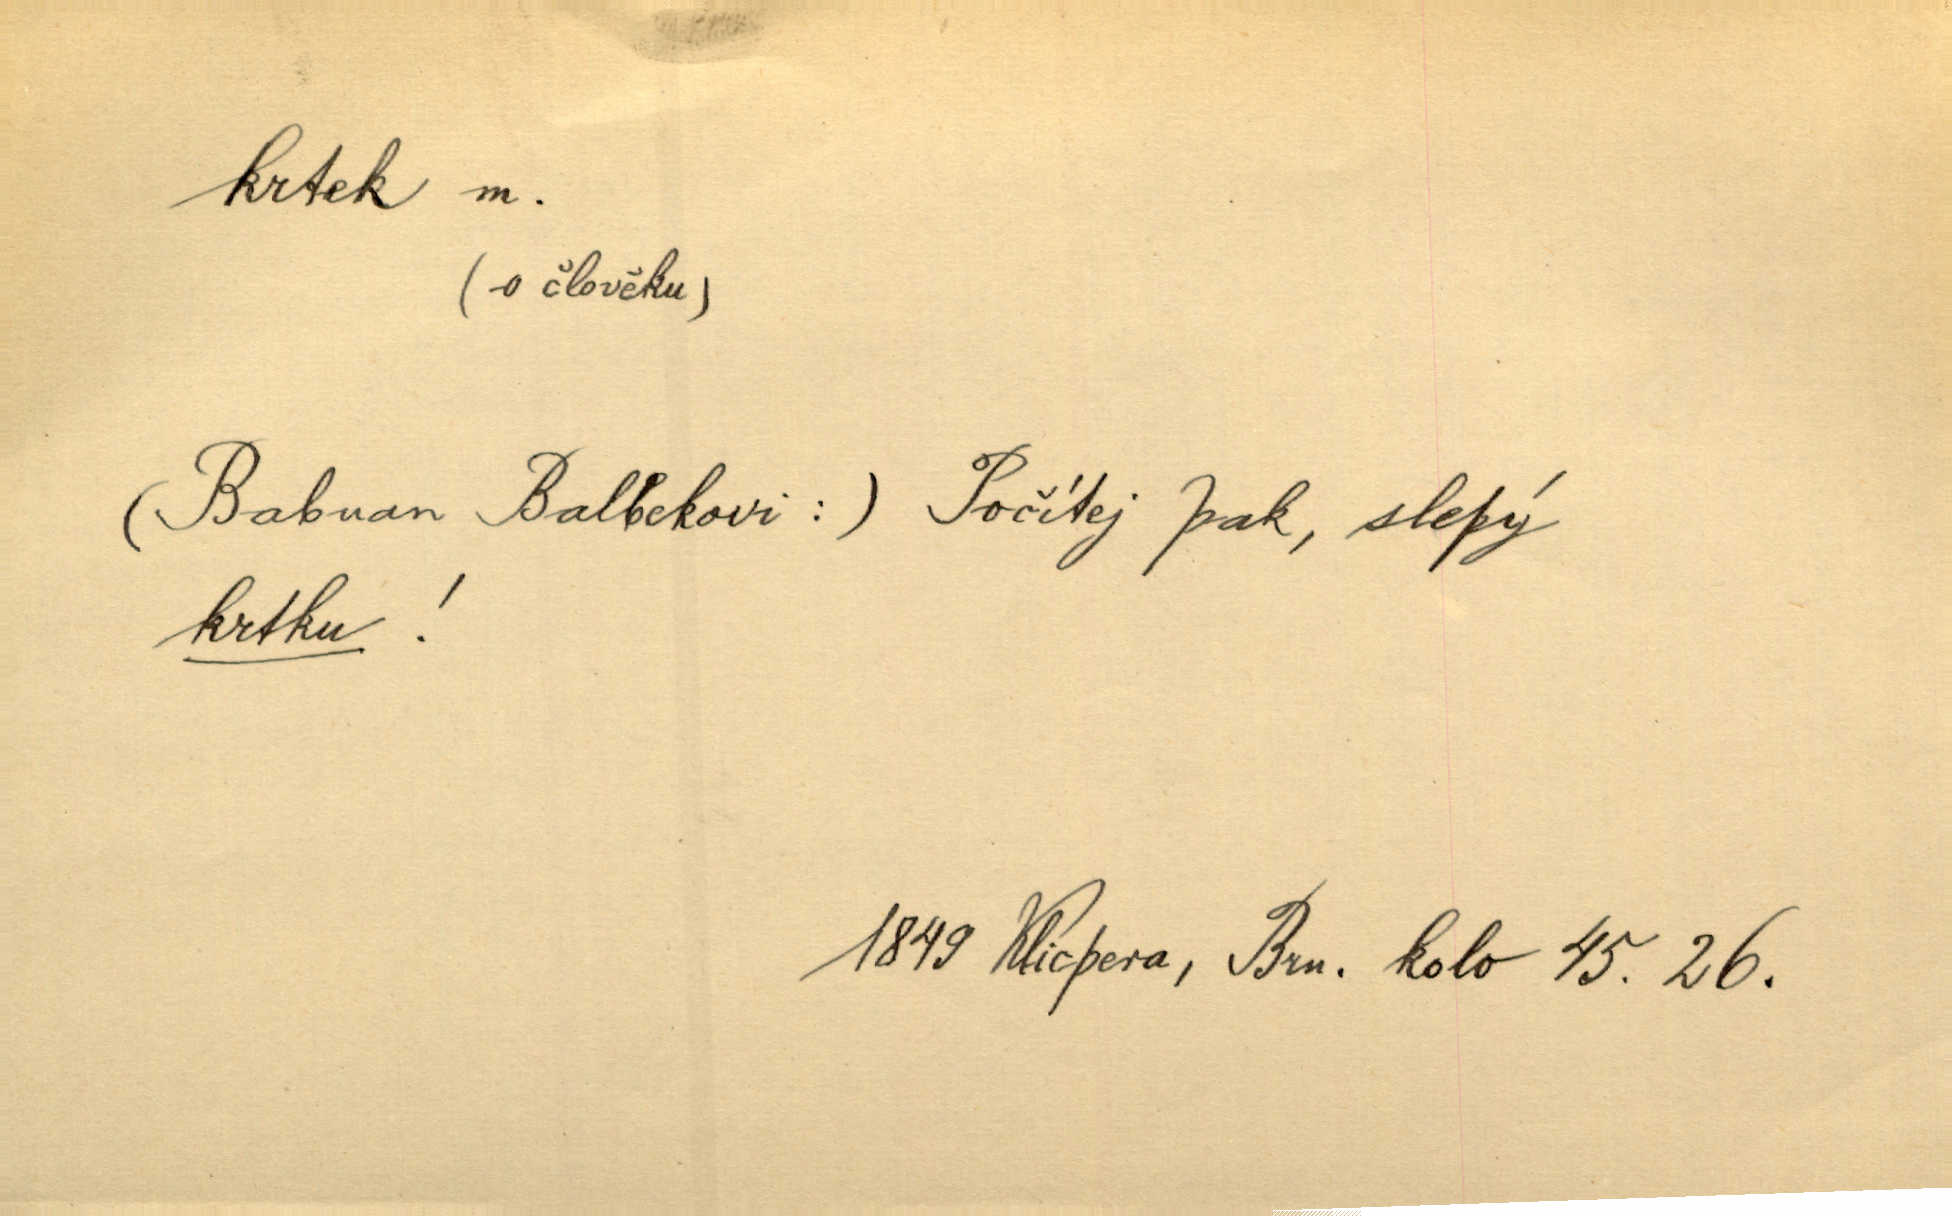 krtek m.
(o člověku)
(Babuan Balbekovi:) Počítej pak, slepý
krtku!
1849 Klicpera, Brn. kolo 45. 26.